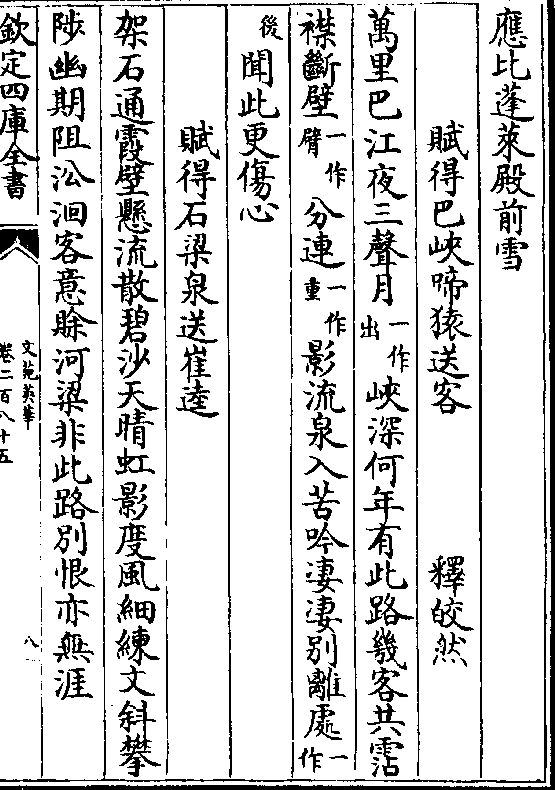 應比蓬萊殿前雪
賦得巴峽啼猿送客　釋皎然
萬里巴江夜三聲月一作出峽深何年有此路幾客共霑
襟斷壁一作臂分連一作重影流泉入苦吟淒淒別離處一作
後聞此更傷心
賦得石梁泉送崔逵
架石通霞壁懸流散碧沙天晴虹影度風細練文斜攀
陟幽期阻沿洄客意賒河梁非此路別恨亦無涯
欽定四庫全書
文苑英華
卷二百八十五
八